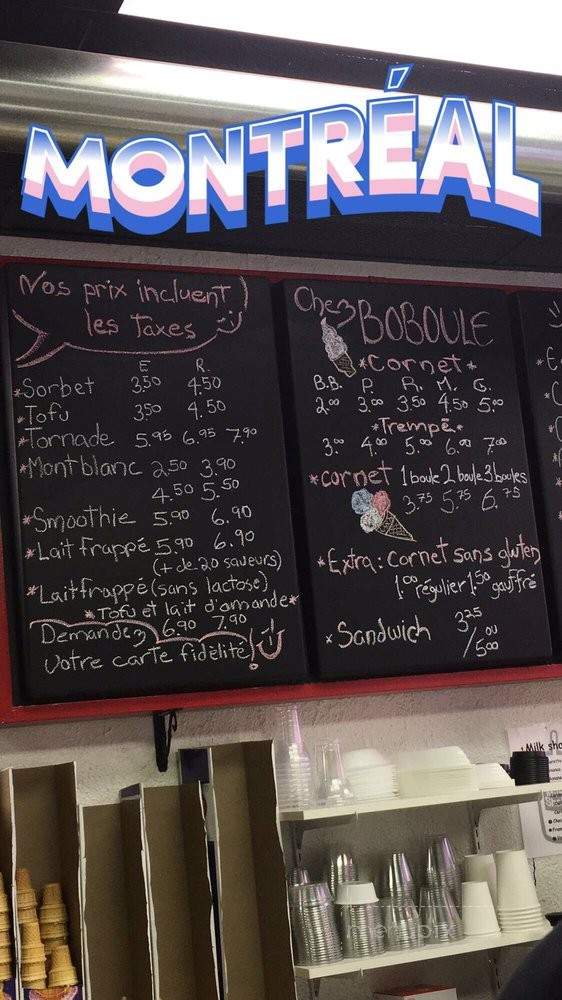 MONTRÉAL
Nos prix incluent
les taxes
E R.
*Sorbet 3.50 4.50
*Tofu 3.50 4.50
*Tornade 5.95 6.95 7.90
*Mont blanc 2.50 3.90
4.50 5.50
*Smoothie 5.90 6.90
*Lait frappé 5.90 6.90
(+ de 20 saveurs)
*Lait frappé (sans lactose)
*Tofu et lait d'amande*
6.90 7.90
Demandez
votre carte fidélité!
Chez BOBOULE
*Cornet*
B.B. P. R. M. G.
2.00 3.00 3.50 4.50 5.00
*Trempé*
3.00 4.00 5.00 6.00 7.00
*cornet 1 boule 2 boule 3 boules
3.75 5.75 6.75
*Extra: Cornet sans gluten
1.00 régulier 1.50 gauffré
*Sandwich 3.25
/ou
5.00
Milk sha